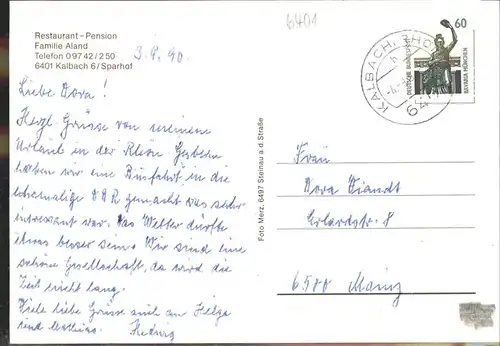 6401
Restaurant – Pension
Familie Aland
Telefon 09742/250
6401 Kalbach 6/Sparhof
3.9.90.
Liebe Dora!
Herzl. Grüsse von meinem
Urlaub in der Rhön. Gestern
haben wir eine Busfahrt in die
ehemalige DDR gemacht was sehr
interessant war. Das Wetter dürfte
etwas besser sein. Wir sind eine
schöne Gesellschaft, da wird die
Zeit nicht lang.
Viele liebe Grüsse auch an Helga
und Mathias. Hedwig
Foto Merz, 6497 Steinau a.d. Straße
KALBACH, RHÖN
6401
60
DEUTSCHE BUNDESPOST
BAVARIA MÜNCHEN
Frau
Dora Wiandt
6500 Mainz